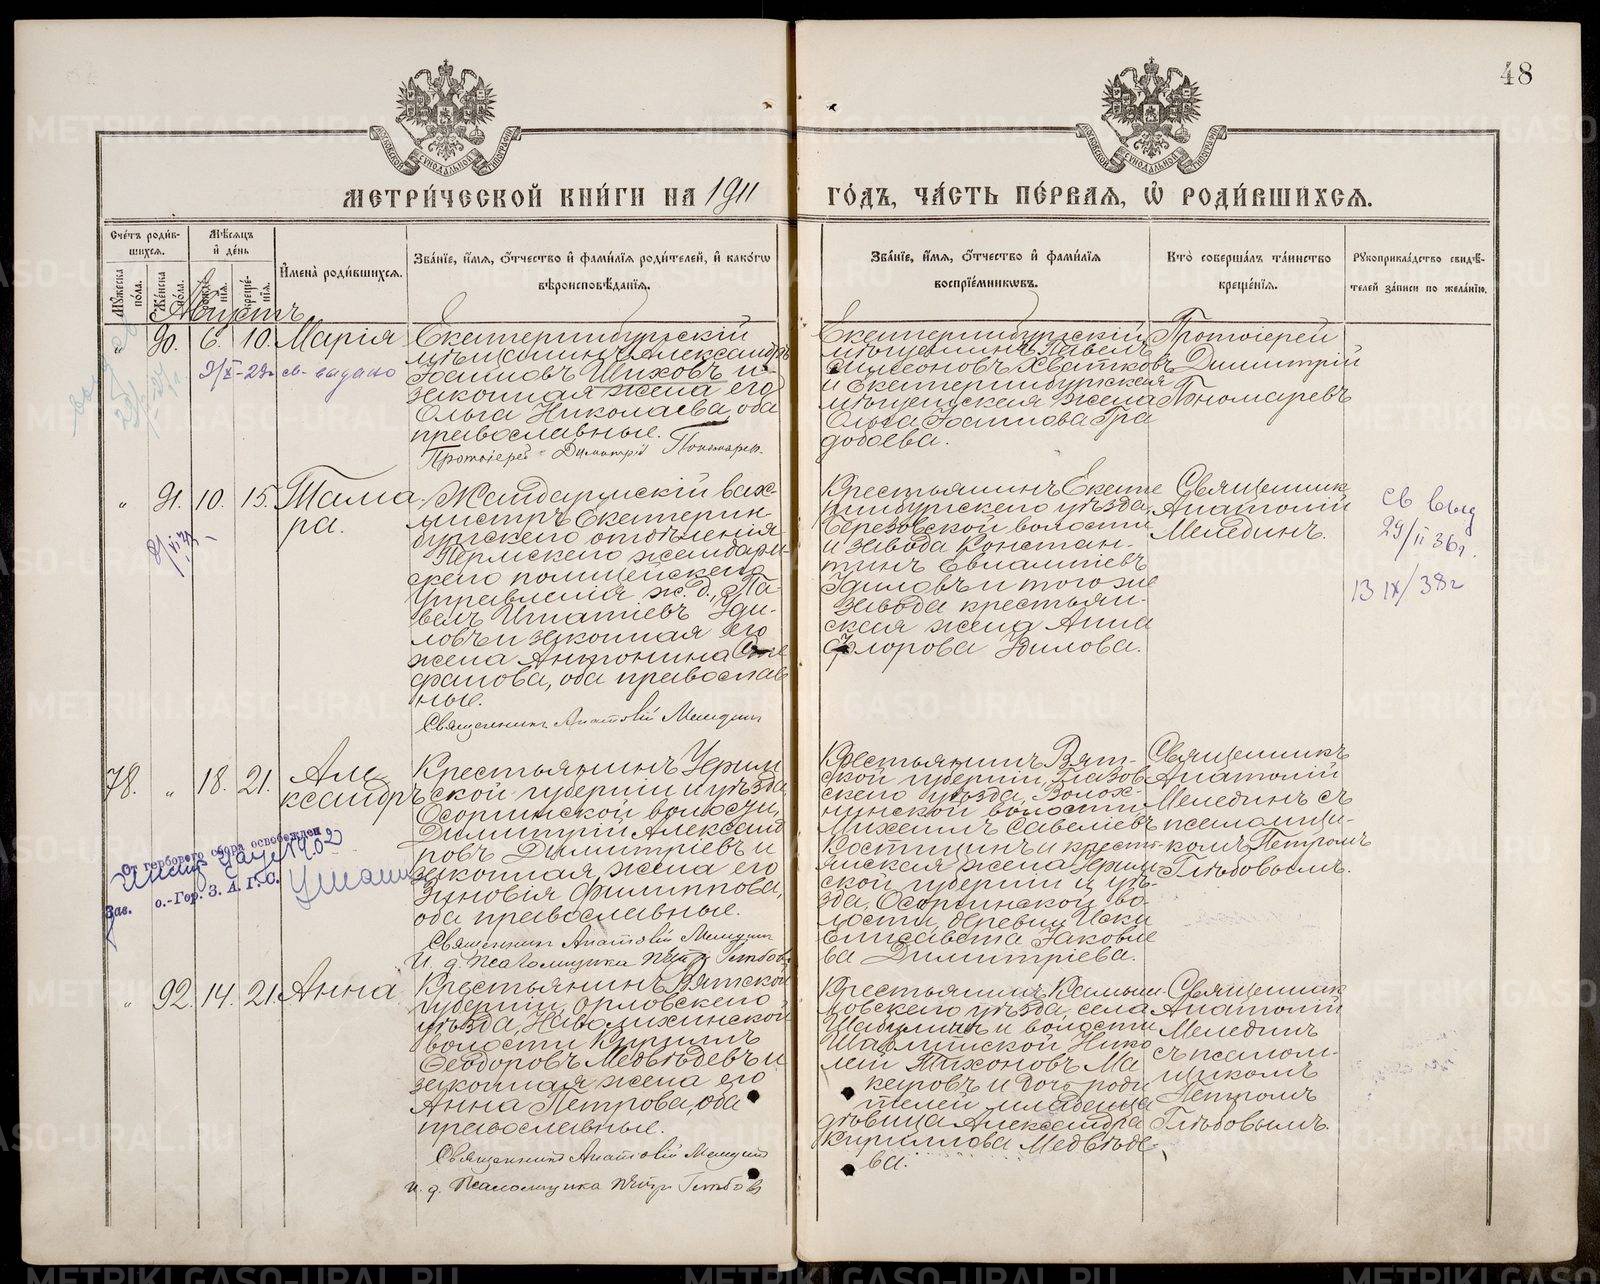 48
МЕТРИ́ЧЕСКОЙ КНИ́ГИ НА 1911 ГО́ДЪ, ЧА́СТЬ ПЕ́РВАЯ, Ѡ҆ РОДИ́ВШИХСЯ.
Сче́тъ роди́в-
шихся.
Мꙋ́жеска по́ла.
Же́нска по́ла.
Мѣ́сяцъ
и҆ де́нь
рожде́-
нїя.
креще́-
нїя.
И҆мена̀ роди́вшихся.
Зва́нїе, и҆́мя, ѻ҆́тчество и҆ фами́лїя роди́телей, и҆ како́гѡ
вѣроисповѣ́данїя.
Зва́нїе, и҆́мя, ѻ҆́тчество и҆ фами́лїя
воспрїе́мникѡвъ.
Кто̀ соверша́лъ та́инство
креще́нїя.
Рꙋкоприкла́дство свидѣ́-
телей за́писи по жела́нїю.
Августъ
„ 90. 6. 10. Марія
9/X-29г св. выдано
Екатеринбургскій
мѣщанинъ Александръ
Іоанновъ Шиховъ и
законная жена его
Ольга Николаева, оба
православные.
Протоіерей Димитрій Пономарев.
Екатеринбургскій
мѣщанинъ Павелъ
Симеоновъ Хватковъ
и Екатеринбургская
мѣщанская жена
Ольга Іоаннова Гра
добоева.
Протоіерей
Димитрій
Пономаревъ
„ 91. 10. 15. Тама
ра.
Жандармскій вах-
мистръ Екатерин-
бургскаго отдѣленія
Пермскаго жандарм-
скаго полицейскаго
Управленія ж. д., Па-
велъ Игнатіевъ Уди-
ловъ и законная его
жена Антонина Сте
фанова, оба православ
ные.
Священникъ Анатолій Меледин
Крестьянинъ Екате
ринбургскаго уѣзда,
Березовской волости
и завода Констан-
тинъ Евлампіевъ
Удиловъ и того же
завода крестьян-
ская жена Анна
Флорова Удилова.
Священник
Анатолій
Мелединъ.
св выд
29/II 36г.
13 IX/38г
78. „ 18. 21. Але
ксандръ
От гербового сбора освобожден
Зав. о.-Гор. З. А. Г. С.
Крестьянинъ Уфим
ской губерніи и уѣзда,
Осоргинской волости,
Димитрій Александ
ровъ Димитріевъ и
законная жена его
Зиновія Филиппова,
оба православные.
Священникъ Анатолій Меледин
И. д. псаломщика Петр Глѣбовъ
Крестьянинъ Вят-
ской губерніи, Глазов
скаго уѣзда,
волости
Михаилъ Савеліевъ
Костицинъ и крестья
янская жена Уфим
ской губерніи и уѣ-
зда, Осоргинской во-
лости, деревни
Елисавета Іаковле
ва Димитріева.
Священникъ
Анатолій
Мелединъ съ
псаломщи-
комъ Петромъ
Глѣбовымъ.
„ 92. 14. 21. Анна
Крестьянинъ Вятской
губерніи, Орловскаго
уѣзда,
волости Кириллъ
Ѳеодоровъ Медвѣдевъ и
законная жена его
Анна Петрова, оба
православные.
Священникъ Анатолій Меледин
и. д. Псаломщика Петр Глѣбовъ
Крестьянинъ Камыш
ловскаго уѣзда, села
и волости
Нико
лай Тихоновъ Ма
каровъ и дочь роди
телей младенца
дѣвица Александра
Кириллова Медвѣде-
ва.
Священник
Анатолій
Мелединъ
съ псалом-
щикомъ
Петромъ
Глѣбовымъ.